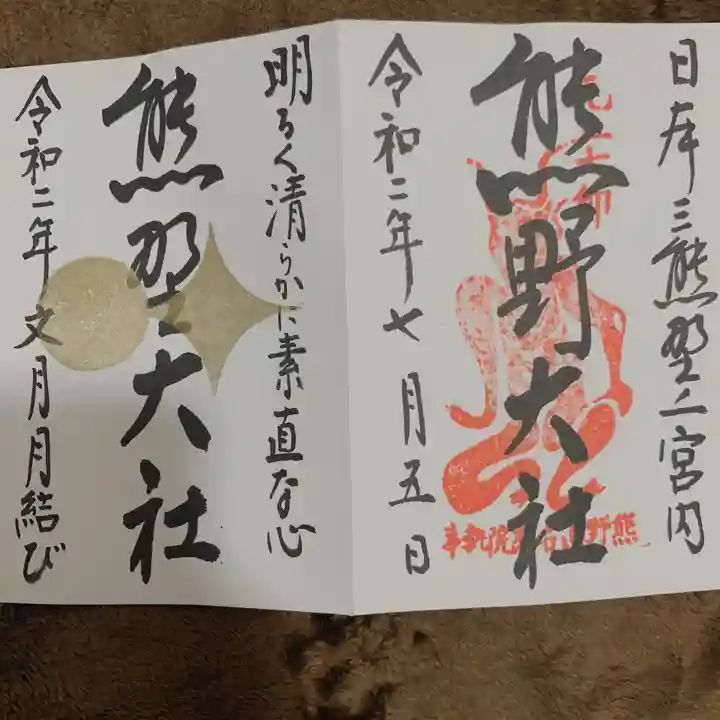 日本三熊野之宮内
熊野大社
令和二年七月五日
明るく清らかに素直な心
熊野大社
令和二年文月月結び